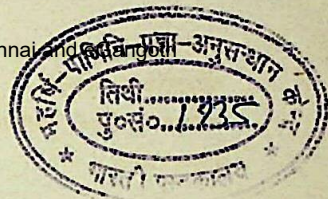 nnai and eGangotri
महर्षि-पाणिनि-प्रज्ञा-अनुसन्धान केन्द्र
तिथी..................
पु०सं०..1935..
* भारती *